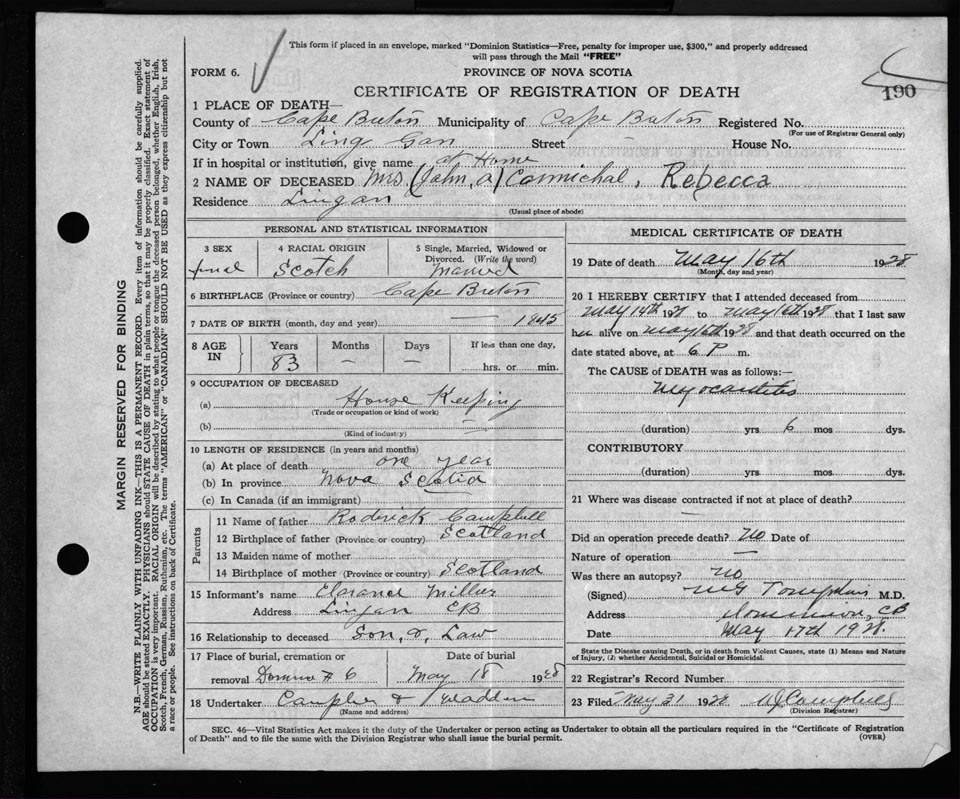 This form if placed in an envelope, marked "Dominion Statistics—Free, penalty for improper use, $300," and properly addressed
will pass through the Mail "FREE"
FORM 6.
PROVINCE OF NOVA SCOTIA
CERTIFICATE OF REGISTRATION OF DEATH
190
1 PLACE OF DEATH—
County of Cape Breton Municipality of Cape Breton Registered No.
(For use of Registrar General only)
City or Town Ling Gan Street House No.
If in hospital or institution, give name at Home
2 NAME OF DECEASED Mrs (John, a) Carmichal, Rebecca
Residence Lingan
(Usual place of abode)
PERSONAL AND STATISTICAL INFORMATION
3 SEX
4 RACIAL ORIGIN
Scotch
5 Single, Married, Widowed or
Divorced. (Write the word)
Married
6 BIRTHPLACE (Province or country) Cape Breton
7 DATE OF BIRTH (month, day and year) — 1845
8 AGE IN
Years
83
Months
—
Days
—
If less than one day,
hrs. or min.
9 OCCUPATION OF DECEASED
(a) House Keeping
(Trade or occupation or kind of work)
(b)
(Kind of industry)
10 LENGTH OF RESIDENCE (in years and months)
(a) At place of death one year
(b) In province Nova Scotia
(c) In Canada (if an immigrant)
Parents
11 Name of father Roderick Campbell
12 Birthplace of father (Province or country) Scotland
13 Maiden name of mother
14 Birthplace of mother (Province or country) Scotland
15 Informant's name Clarance Millier
Address Lingan CB
16 Relationship to deceased Son, &, Law
17 Place of burial, cremation or
removal Domino # 6
Date of burial
May 18 1928
18 Undertaker
(Name and address)
MEDICAL CERTIFICATE OF DEATH
19 Date of death May 16th 1928
(Month, day and year)
20 I HEREBY CERTIFY that I attended deceased from
May 14th 1928 to May 16th 1928 that I last saw
her alive on May 16th 1928 and that death occurred on the
date stated above, at 6 P m.
The CAUSE of DEATH was as follows:—
Myocarditis
(duration) yrs 6 mos dys.
CONTRIBUTORY
(duration) yrs mos dys.
21 Where was disease contracted if not at place of death?
—
Did an operation precede death? No Date of
Nature of operation —
Was there an autopsy? No
(Signed) MG Tompkins M.D.
Address Dominion, CB
Date May 17th 1928.
State the Disease causing Death, or in death from Violent Causes, state (1) Means and Nature
of Injury, (2) whether Accidental, Suicidal or Homicidal.
22 Registrar's Record Number
23 Filed May 31 1928 Campbell
(Division Registrar)
SEC. 46—Vital Statistics Act makes it the duty of the Undertaker or person acting as Undertaker to obtain all the particulars required in the "Certificate of Registration
of Death" and to file the same with the Division Registrar who shall issue the burial permit.
(OVER)
MARGIN RESERVED FOR BINDING
N.B.—WRITE PLAINLY WITH UNFADING INK—THIS IS A PERMANENT RECORD. Every item of information should be carefully supplied.
AGE should be stated EXACTLY. PHYSICIANS should STATE CAUSE OF DEATH in plain terms, so that it may be properly classified. Exact statement of
OCCUPATION is very important. RACIAL ORIGIN will be described by stating to what people or tongue the deceased person belonged, whether English, Irish,
Scotch, French, German, Russian, Ruthenian, etc. The terms "AMERICAN" or "CANADIAN" SHOULD NOT BE USED as they express citizenship but not
a race or people. See instructions on back of Certificate.